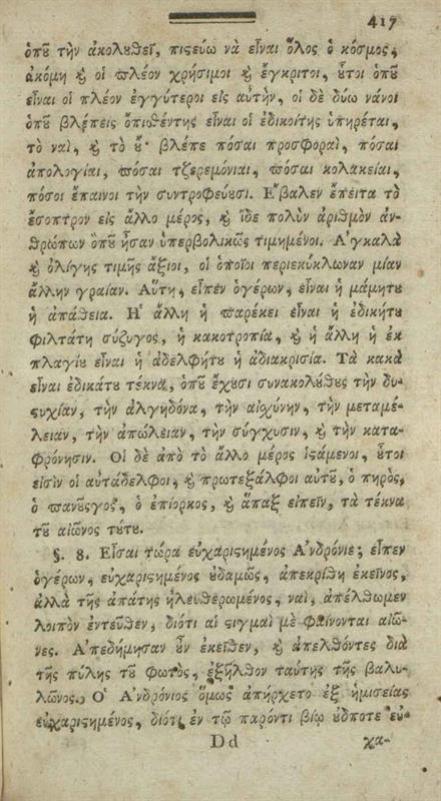 417
ὁπῦ τὴν ἀκολυθεῖ, πιςεύω νὰ εἶναι ὅλος ὁ κόσμος,
ἀκόμη ϗ οἱ πλέον χρήσιμοι ϗ ἔγκριτοι, ὗτοι ὁπῦ
εἶναι οἱ πλέον ἐγγύτεροι εἰς αὐτὴν, οἱ δὲ δύω νάνοι
ὁπῦ βλέπεις ὄπιοθέντης εἶναι οἱ ἐδικοίτης ὑπηρέται,
τὸ ναὶ, ϗ τὸ ȣ̓· βλέπε πόσαι προσφοραὶ, πόσαι
ἀπολογίαι, πόσαι τζερεμόνιαι, πόσαι κολακείαι,
πόσοι ἔπαινοι τὴν συντροφεύυσι. Ἔβαλεν ἔπειτα τὸ
ἔσοπτρον εἰς ἄλλο μέρος, ϗ ἴδε πολὺν ἀριθμὸν ἀν-
θρώπων ὁπῦ ἦσαν ὑπερβολικῶς τιμημένοι. Ἀγκαλὰ
ϗ ὀλίγης τιμῆς ἄξιοι, οἱ ὁποῖοι περιεκύκλωναν μίαν
ἄλλην γραίαν. Αὕτη, εἶπεν ὁγέρων, εἶναι ἡ μάμητυ
ἡ ἀπάθεια. Ἡ ἄλλη ἡ παρέκει εἶναι ἡ ἐδικήτυ
φιλτάτη σύζυγος, ἡ κακοτροπία, ϗ ἡ ἄλλη ἡ ἐκ
πλαγίυ εἶναι ἡ ἀδελφήτυ ἡ ἀδιακρισία. Τὰ κακὰ
εἶναι ἐδικάτυ τέκνα, ὁπῦ ἔχυσι συνακολύθυς τὴν δυ-
ςυχίαν, τὴν ἀλγηδόνα, τὴν αἰσχύνην, τὴν μεταμέ-
λειαν, τὴν ἀπώλειαν, τὴν σύγχυσιν, ϗ τὴν κατα-
φρόνησιν. Οἱ δὲ ἀπὸ τὸ ἄλλο μέρος ἱςάμενοι, ὗτοι
εἰσὶν οἱ αὐτάδελφοι, ϗ πρωτεξάλφοι αὐτῦ, ὁ πηρὸς,
ὁ πανῦργος, ὁ ἐπίορκος, ϗ ἅπαξ εἰπεῖν, τὰ τέκνα
τῦ αἰῶνος τύτυ.
§. 8. Εἶσαι τώρα εὐχαριςημένος Ἀνδρόνιε; εἶπεν
ὁγέρων, εὐχαριςημένος ὐδαμῶς, ἀπεκρίθη ἐκεῖνος,
ἀλλὰ τῆς ἀπάτης ἠλευθερωμένος, ναὶ, ἀπέλθωμεν
λοιπὸν ἐντεῦθεν, διότι αἱ ςιγμαὶ μὲ φαίνονται αἰῶ-
νες. Ἀπεδήμησαν ὖν ἐκεῖθεν, ϗ ἀπελθόντες διὰ
τῆς πύλης τῦ φωτὸς, ἐξῆλθον ταύτης τῆς βαλυ-
λῶνος. Ὁ Ἀνδρόνιος ὅμως ἀπήρχετο ἐξ ἡμισείας
εὐχαριςημένος, διότι ἐν τῷ παρόντι βίῳ ὐδποτε εὐ-
Dd χα-